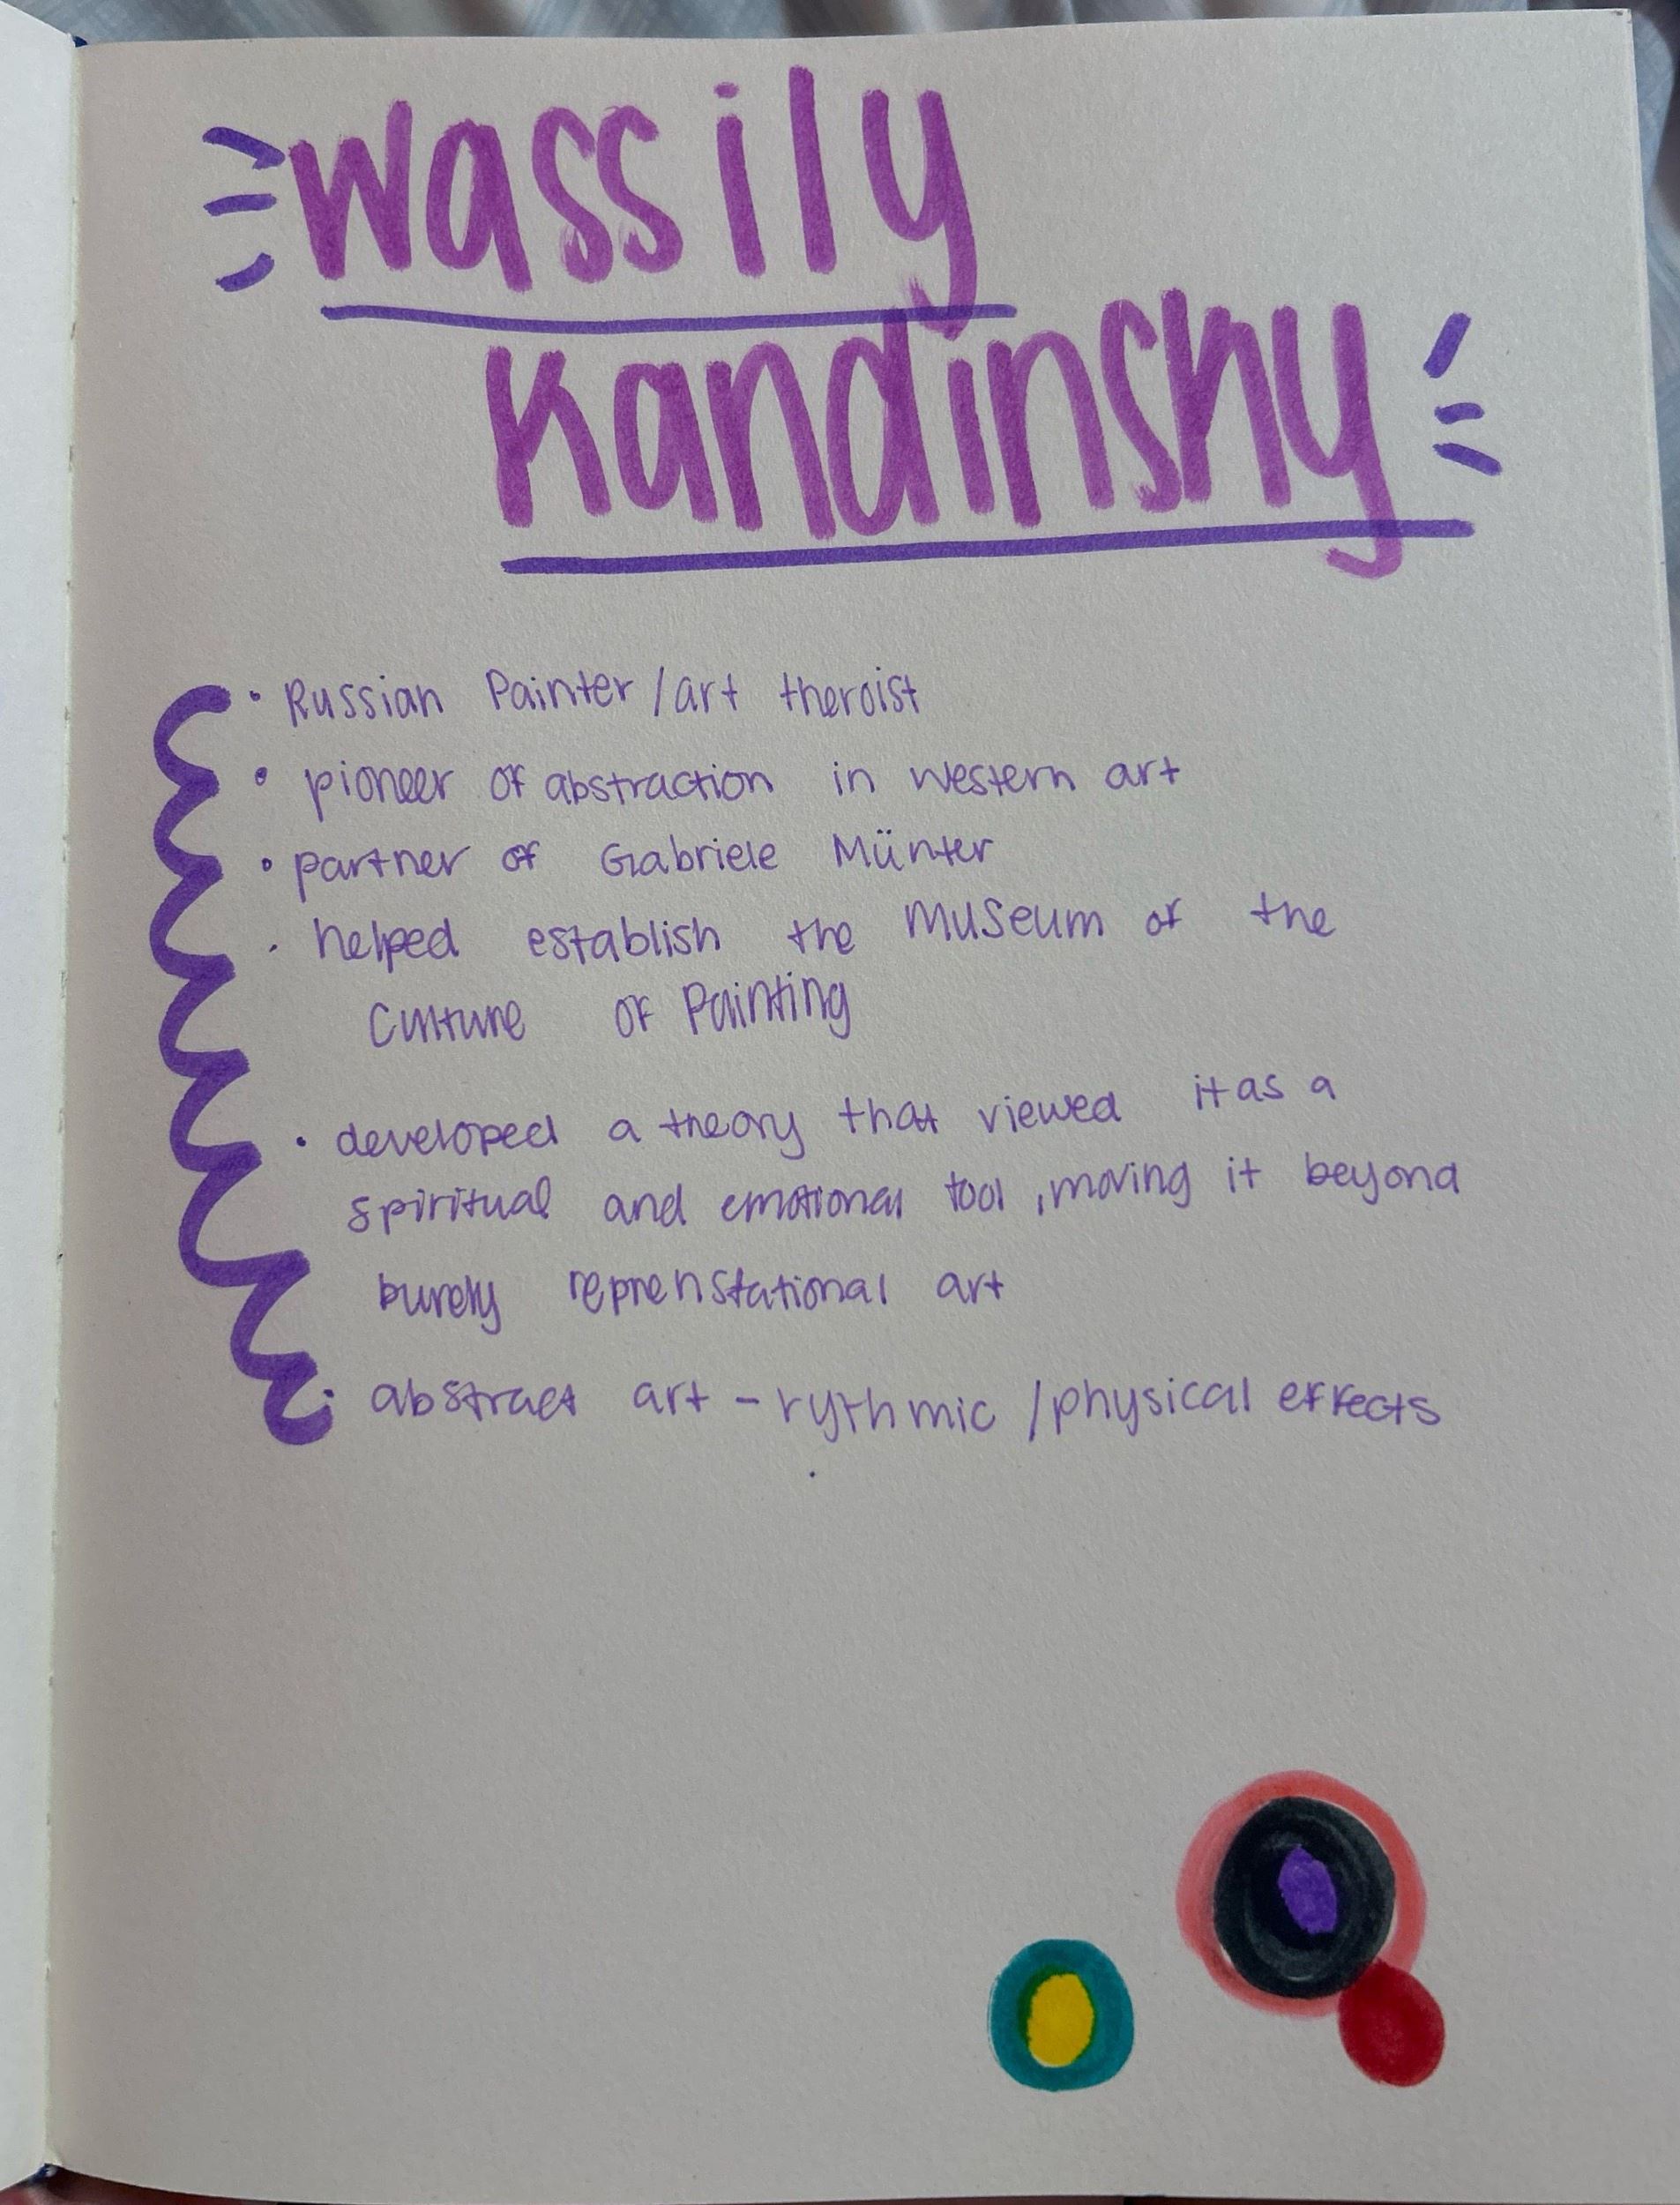 wassily
Kandinsky
• Russian Painter/art theroist
• pioneer of abstraction in western art
• partner of Gabriele Münter
• helped establish the Museum of the
Culture of Painting
• developed a theory that viewed it as a
spiritual and emotional tool, moving it beyond
purely reprenstational art
• abstract art - rythmic /physical effects